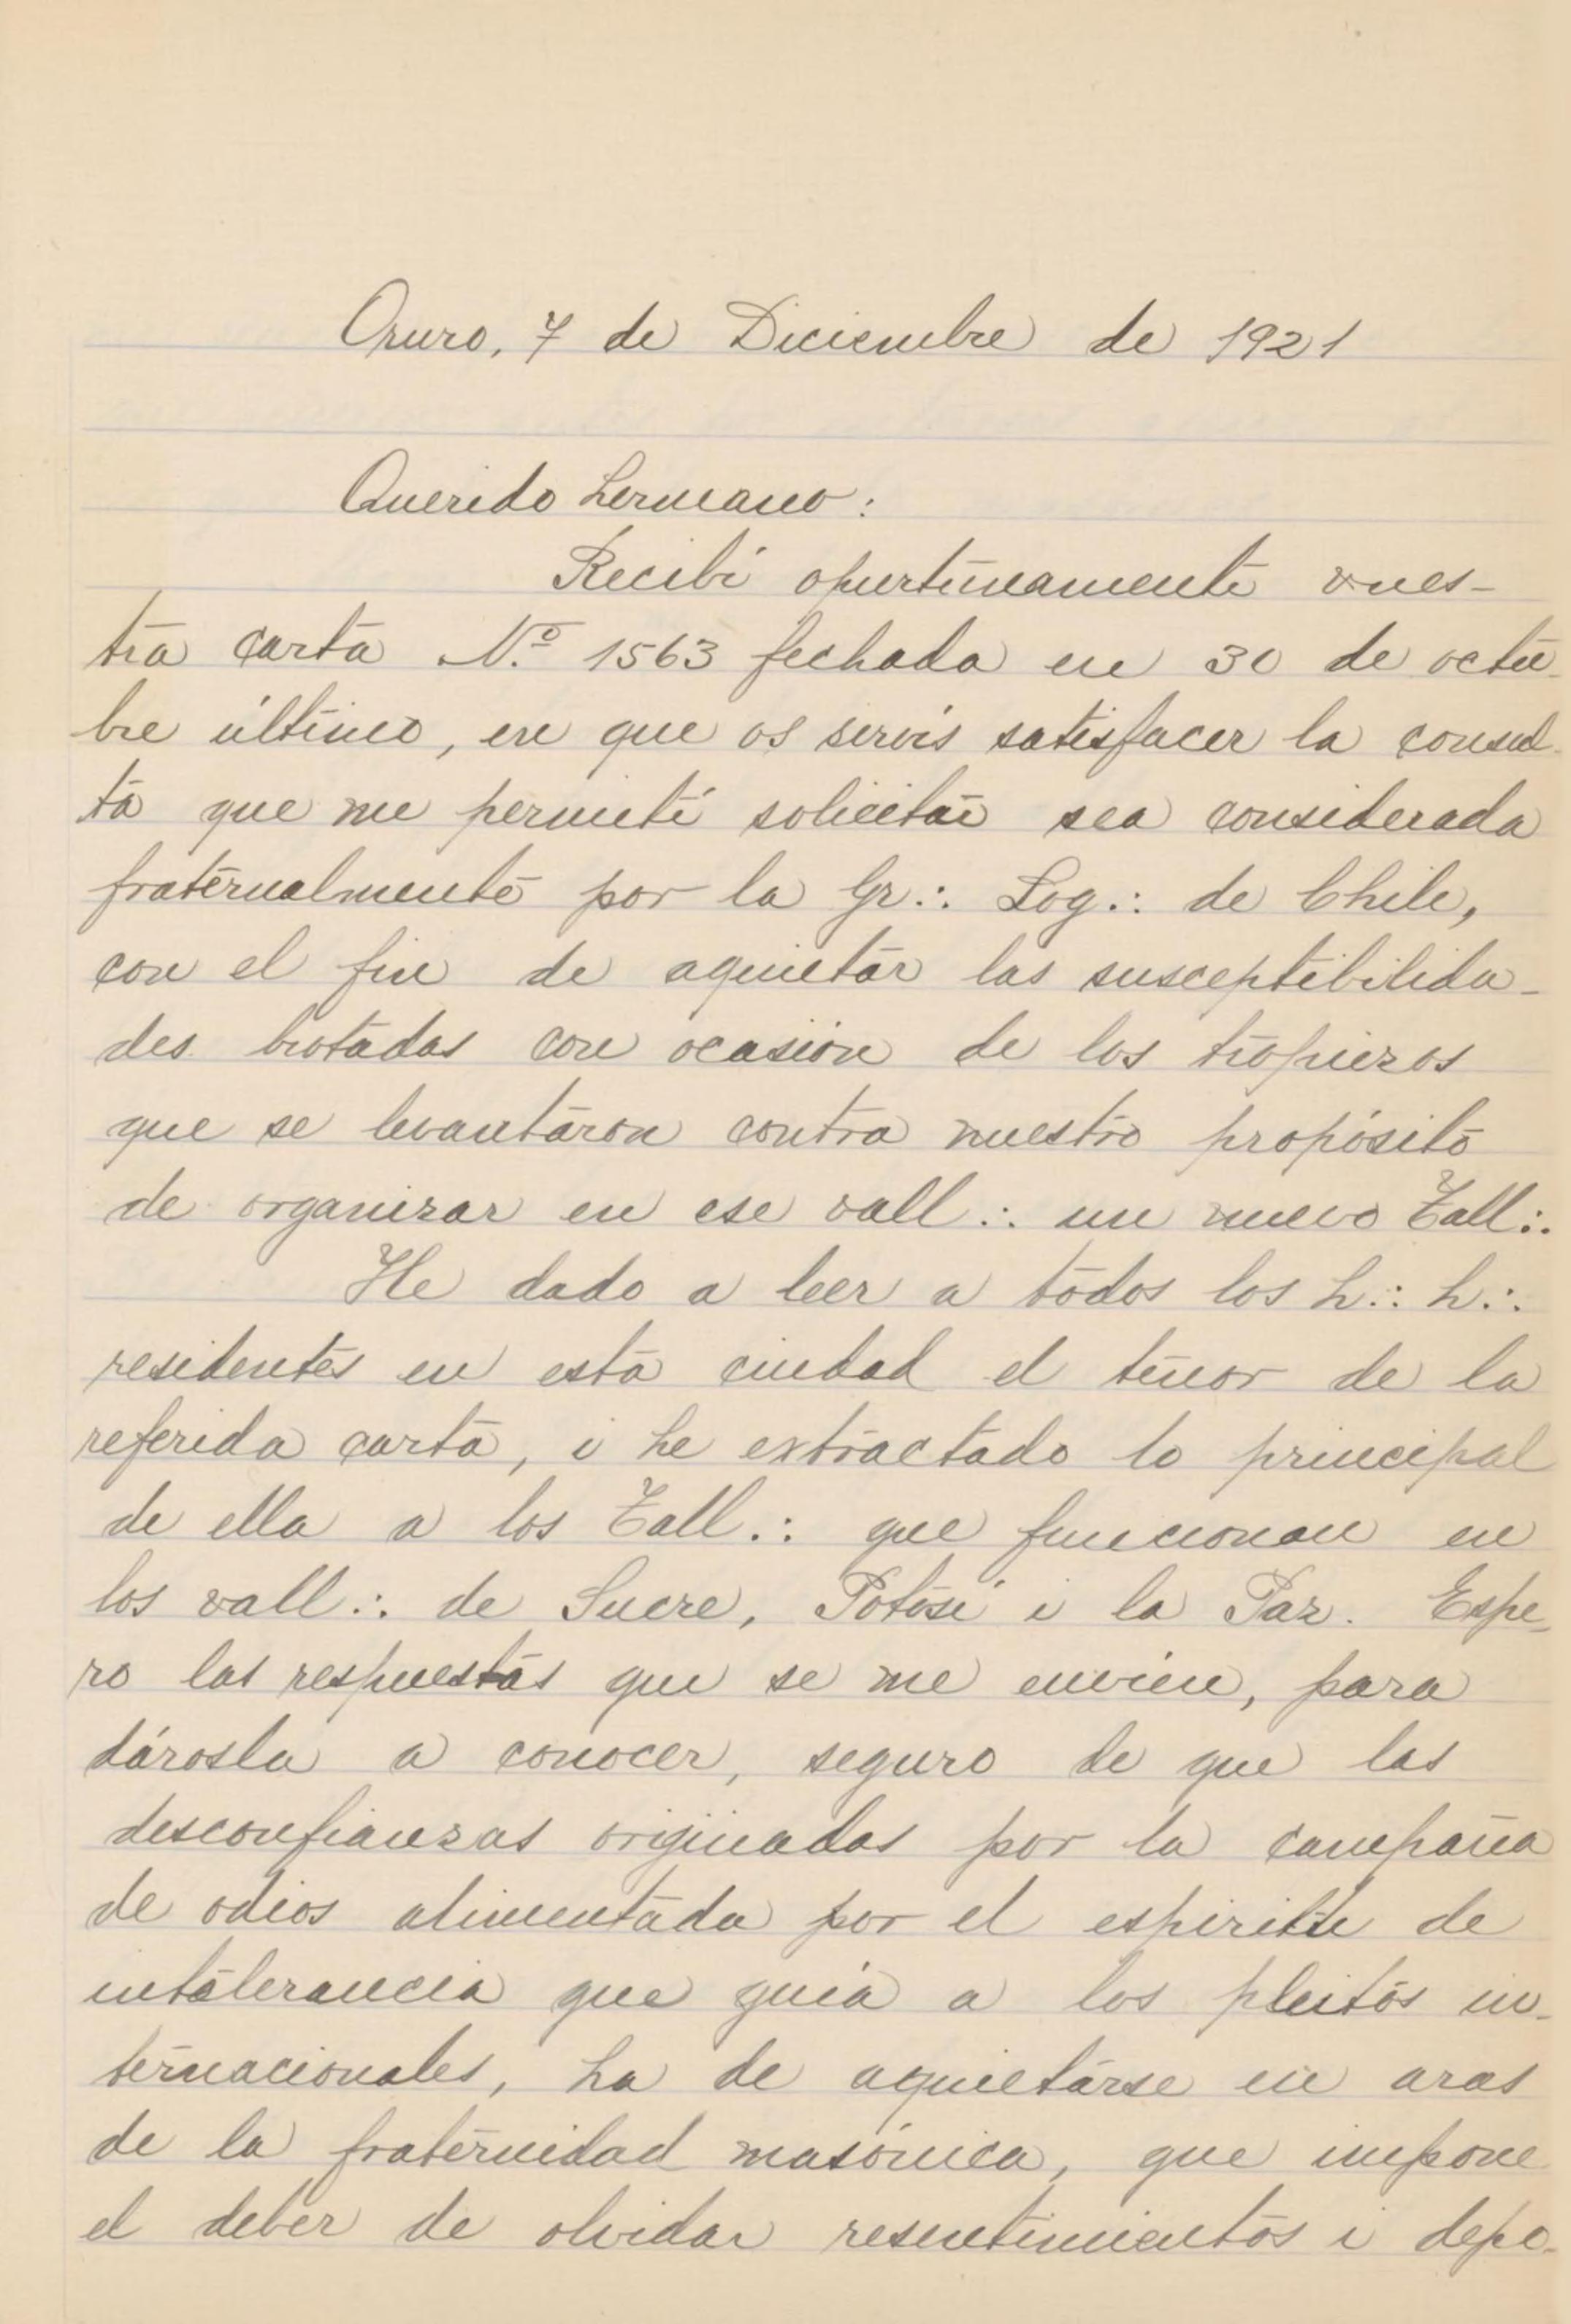 Oruro, 7 de Diciembre de 1921
Querido hermano:
Recibí opurtunamente vues-
tra carta N.º 1563 fechada en 30 de octu-
bre último, en que os servís satisfacer la consul-
ta que me permití solicitar sea considerada
fraternalmente por la Gr.·. Log.·. de Chile,
con el fin de aquietar las susceptibilida-
des brotadas con ocasión de los tropiezos
que se levantaron contra nuestro propósito
de organizar en ese vall.·. un nuevo Tall.·.
He dado a leer a todos los h.·. h.·.
residentes en esta ciudad el tenor de la
referida carta, i he extractado lo principal
de ella a los Tall.·. que funcionan en
los vall.·. de Sucre, Potosí i la Paz. Espe-
ro las respuestas que se me envíen, para
dárosla a conocer, seguro de que las
desconfianzas originadas por la campaña
de odios alimentada por el espiritu de
intolerancia que guía a los pleitos in-
ternacionales, ha de aquietarse en aras
de la fraternidad masónica, que impone
el deber de olvidar resentimientos i depo-